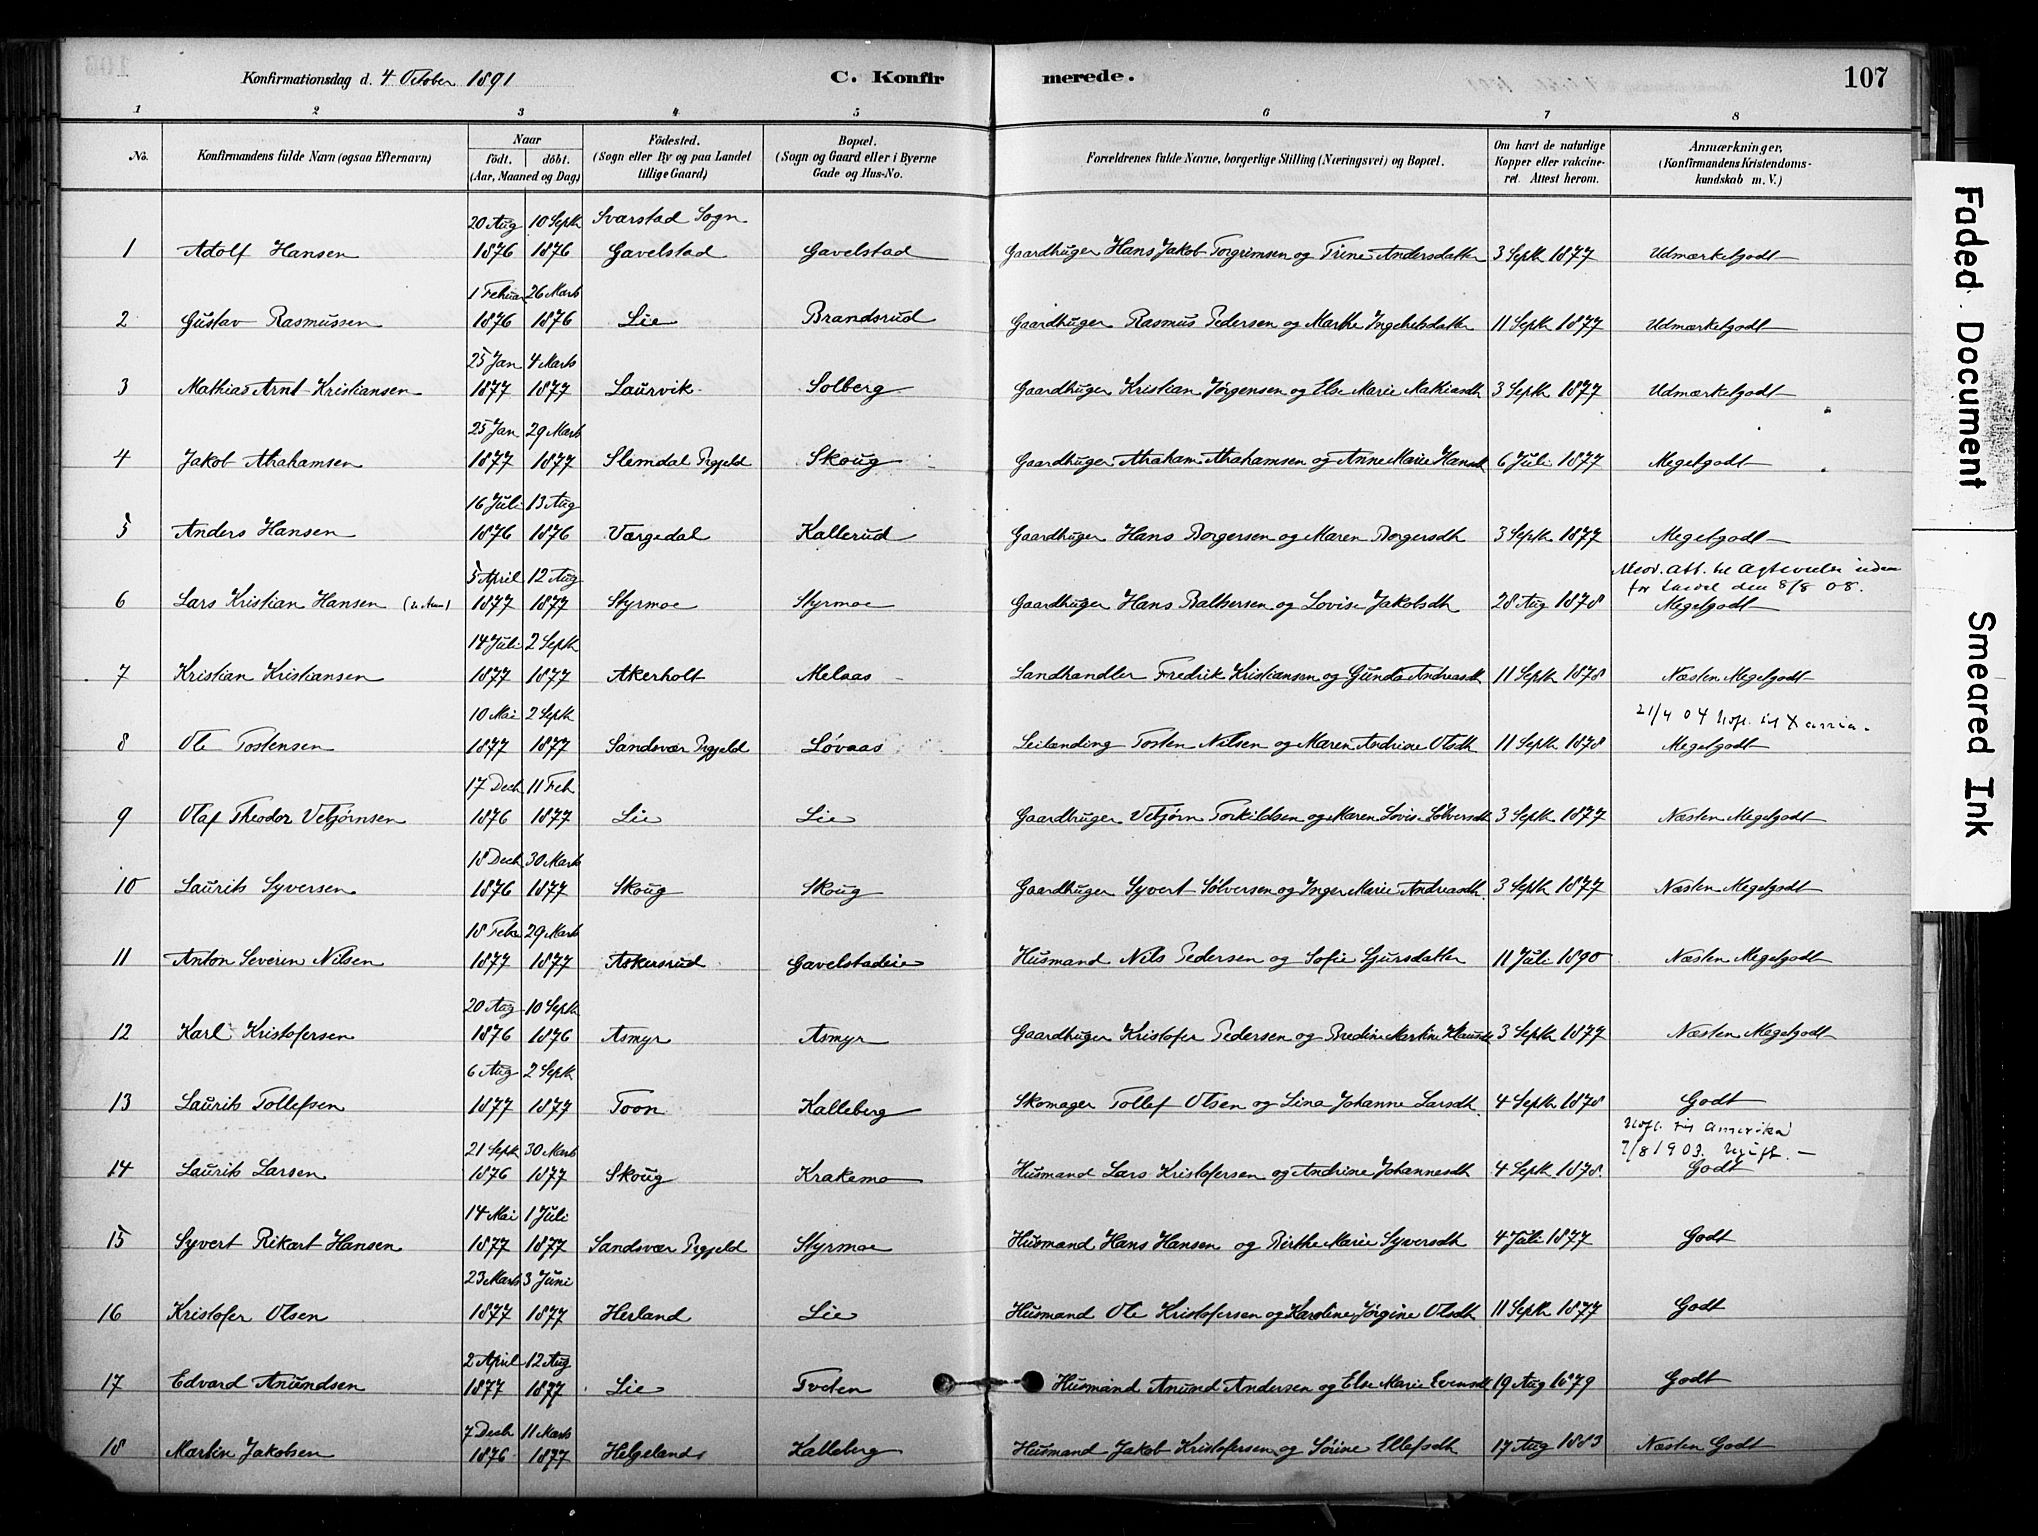 Konfirmationsdag d. 4 October 1891
C. Konfirmerede.
107
1 2 3 4 5 6 7 8
No. Konfirmandens fulde Navn (ogsaa Efternavn) Naar födt. döbt. (Aar, Maaned og Dag) Födested. (Sogn eller By og paa Landet tillige Gaard) Bopæl. (Sogn og Gaard eller i Byerne Gade og Hus-No. Forældrenes fulde Navne, borgerlige Stilling (Næringsvei) og Bopæl. Om havt de naturlige Kopper eller vakcineret. Attest herom. Anmærkninger, (Konfirmandens Kristendomskundskab m. V.)
20 Aug 10 Septb Svarstad Sogn
1 Adolf Hansen 1876 1876 Gavelstad Gavelstad Gaardbruger Hans Jakob Torgrimsen og Trine Andersdatter 3 Septb 1877 Udmærketgodt
1 Februar 26 Marts
2 Gustav Rasmussen 1876 1876 Lie Brandsrud Gaardbruger Rasmus Pedersen og Marthe Ingebretsdatter 11 Septb 1877 Udmærketgodt
25 Jan 4 Marts
3 Mathias Arnt Kristiansen 1877 1877 Laurvik Solberg Gaardbruger Kristian Jørgensen og Else Marie Mathiasdt 3 Septb 1877 Udmærketgodt
25 Jan 29 Marts
4 Jakob Abrahamsen 1877 1877 Slemdal Prgjeld Skoug Gaardbruger Abraham Abrahamsen og Anne Marie Hansdt 6 Juli 1877 Megetgodt
16 Juli 13 Aug
5 Anders Hansen 1876 1876 Vargedal Kallerud Gaardbruger Hans Borgersen og Maren Borgersdt 3 Septb 1877 Megetgodt
5 April 12 Aug
den 8/8 08.
6 Lars Kristian Hansen 1877 1877 Styrmoe Styrmoe Gaardbruger Hans Baltsersen og Lovise Jakobsdt 28 Aug 1878 Megetgodt
14 Juli 2 Septb
7 Kristian Kristiansen 1877 1877 Akerholt Melaas Landhandler Fredrik Kristiansen og Gunda Andreasdt 11 Septb 1878 Næsten Megetgodt
10 Mai 2 Septb 21/4 04
8 Ole Tostensen 1877 1877 Sandsvær Prgjeld Løvaas Leilænding Tosten Nilsen og Maren Andrine Olsdt 11 Septb 1878 Megetgodt
17 Decb 11 Feb
9 Olaf Theodor Vebjørnsen 1876 1877 Lie Lie Gaardbruger Vebjørn Torkildsen og Maren Lovise Sølversdt 3 Septb 1877 Næsten Megetgodt
18 Decb 30 Marts
10 Laurits Syversen 1876 1877 Skoug Skoug Gaardbruger Syvert Sølversen og Inger Marie Andreasdt 3 Septb 1877 Næsten Megetgodt
18 Febr 29 Marts
11 Anton Severin Nilsen 1877 1877 Askersrud Gavelstadeie Husmand Nils Pedersen og Sofie Sjursdatter 11 Juli 1890 Næsten Megetgodt
20 Aug 10 Septb
12 Karl Kristofersen 1876 1876 Asmyr Asmyr Gaardbruger Kristofer Pedersen og Bredine Martine Klausdt 3 Septb 1877 Næsten Megetgodt
6 Aug 2 Septb
13 Laurits Tollefsen 1877 1877 Toon Kalleberg Skomager Tollef Olsen og Lina Johanne Larsdt 4 Septb 1878 Godt
21 Septb 30 Marts til Amerika
7/8 1903. Ugift.
14 Laurits Larsen 1876 1877 Skoug Krakemo Husmand Lars Kristofersen og Andrine Johannesdt 4 Septb 1878. Godt
14 Mai 1 Juli
15 Syvert Rikart Hansen 1877 1877 Sandsvær Prgjeld Styrmoe Husmand Hans Hansen og Birthe Marie Syversdt 4 Juli 1877 Godt
23 Marts 3 Juni
16 Kristofer Olsen 1877 1877 Herland Lie Husmand Ole Kristofersen og Karoline Jørgine Olsdt 11 Septb 1877 Godt
2 April 12 Aug
17 Edvard Anundsen 1877 1877 Lie Tveten Husmand Anund Andersen og Else Marie Evensdt 19 Aug 1879 Godt
7 Decb 11 Marts
18 Martin Jakobsen 1876 1877 Helgeland Kalleberg Husmand Jakob Kristofersen og Sørine Ellefsdt 17 Aug 1883 Næsten Godt
Faded Document
Smeared Ink